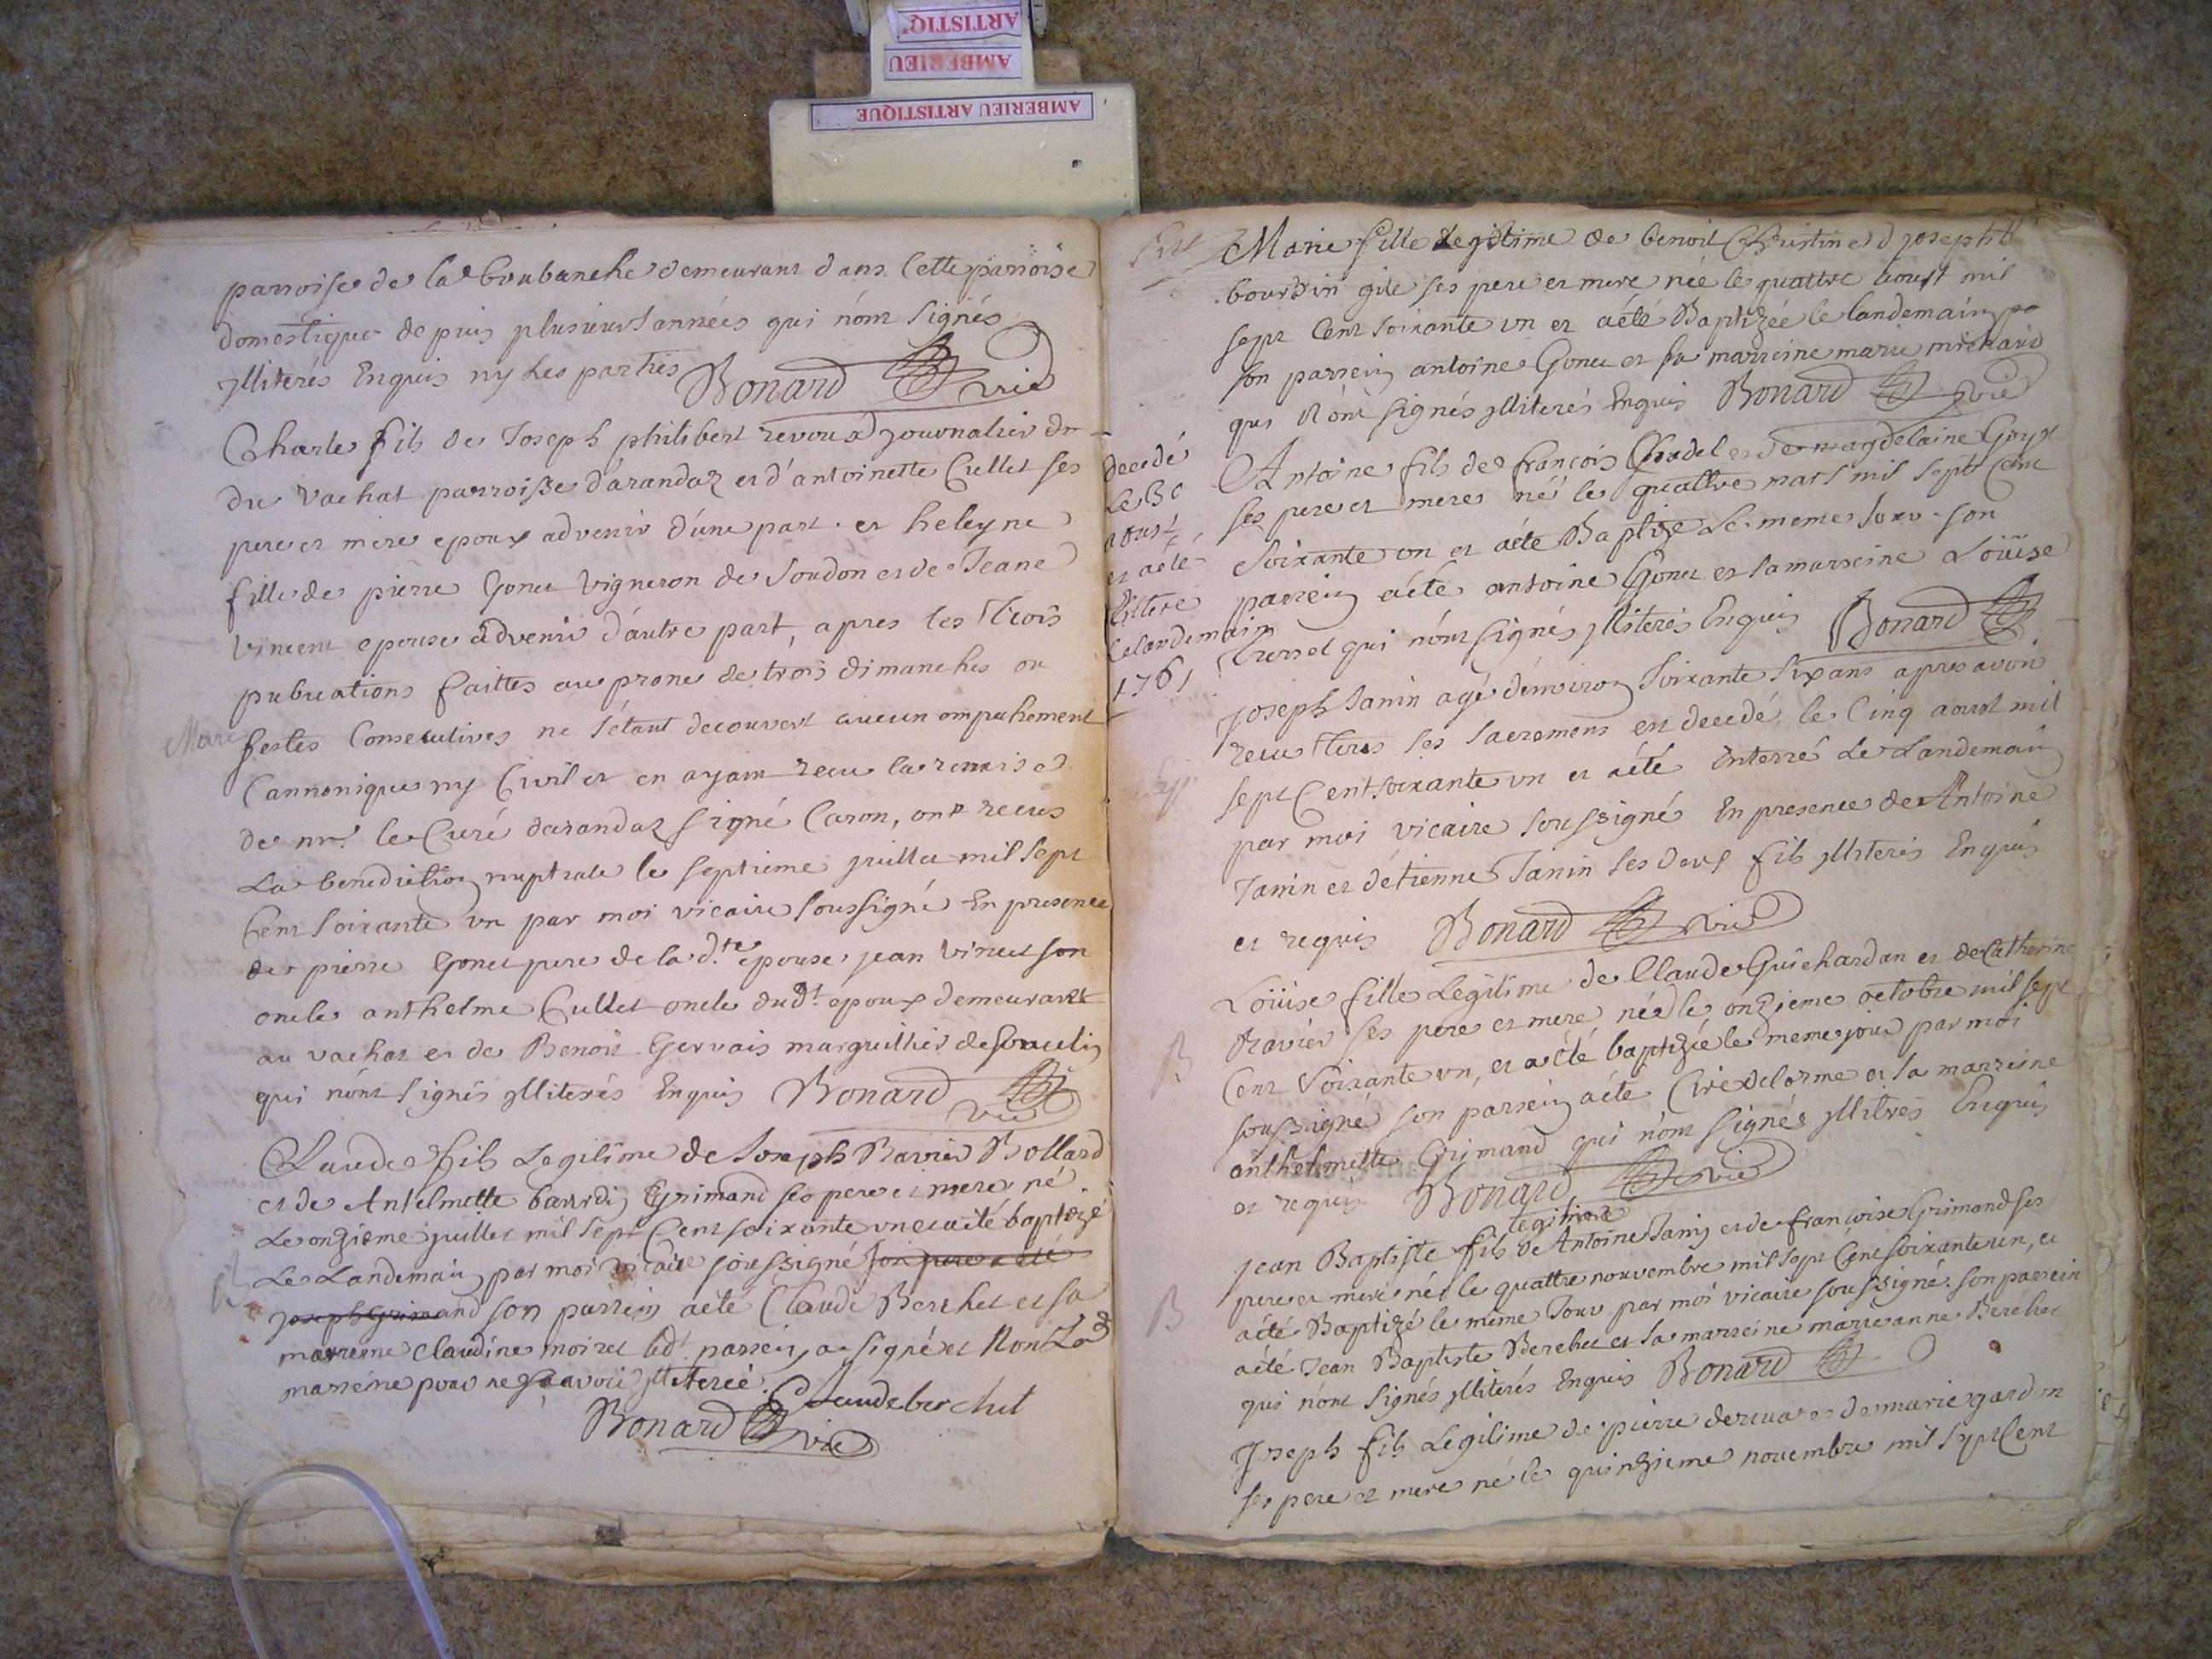 ARTISTIQ'
AMBERIEU
AMBERIEU ARTISTIQUE
parroise de la boubanche demeurant dans Cette parroise
domestique depuis plusieurs années qui n'ont signés
jlliterés Enquis ny les parties Bonard vic
Charle fils de Joseph philibert revoux journalier
du vachat parroisse d'arandaz et d'antoinette Cullet ses
pere et mere epoux advenir d'une part. et heleyne
fille de pierre Gonet vigneron de Soudon et de Jeane
Vincent epouse advenir d'autre part, apres les trois
publications faittes au prone de trois dimanches ou
Mari
festes Consecutives ne s'étant decouvert aucun empechement
Cannonique ny Civil et en ayant recu la remise
de mr. le Curé darandaz signé Caron, ont recus
La benediction nuptiale le septieme juillet mil sept
Cent soixante un par moi vicaire soussigné En presence
de pierre Gonet pere de la d.te epouse, jean Vincent son
oncle anthelme Cullet oncle dud.t epoux demeurant
au vachat et de Benoit Gervais marguillier de
qui n'ont signés jlliterés Enquis Bonard vic
Claude fils Legitime de Joseph Barrier Bollard
et de Antelmette Grimand ses pere et mere né
Le onzieme juillet mil sept Cent soixante un et a été baptizé
B
Le Landemain par moi vicaire soussigné son pere a été
Joseph Grimand son parrein a été Claude Berchet et sa
marreine Claudine moiret led.t parrein a signé et Non La
marreine pour ne sçavoir jlliterée. Claude berchet
Bonard vic
Marie fille Legitime de benoit Christin et d josepht
bourdin ses pere et mere née le quattre aoust mil
sept Cent soixante un et a été Baptizée le landemain
son parrein antoine Gonet et sa marreine marie michaud
qui N'ont signés jlliterés Enquis Bonard vic
decedé
le 30
aoust
et a été
Enteré
le landemain
1761
Antoine fils de françois Gradel et de magdelaine
ses pere et mere né le quattre mars mil sept Cent
Soixante un et a été Baptizé Le meme Jour. son
parrein a été antoine Gonet et sa marreine Loüise
qui n'ont signés jlliterés Enquis Bonard
Joseph Janin agé denviron soixante six ans apres avoir
recu tous les sacremens est decedé le Cinq aoust mil
sept Cent soixante un et a été Enterré Le Landemain
par moi vicaire soussigné En presence de Antoine
Janin et d'etienne Janin ses deux fils jlliterés Enquis
et requis Bonard vic
Loüise fille Legitime de Claude Guichardan et de Catherine
Ravier ses pere et mere née le onzieme octobre mil sept
B
Cent soixante un, et a été baptizée le meme jour par moi
soussigné son parrein a été delorme et sa marreine
anthelmette Grimand qui n'ont signés jllitrés Enquis
et requis Bonard vic
legitime
jean Baptiste fils de Antoine Janin et de françoise Grimand ses
pere et mere né le quattre nouvembre mil sept Cent soixante un, et
B
a été Baptizé le meme Jour par moi vicaire soussigné. son parrein
a été Jean Baptiste Berchet et sa marreine marie anne Berchet
qui n'ont signés jlliterés Enquis Bonard
Joseph fils Legitime de pierre et de marie
ses pere et mere né le quinzieme novembre mil sept Cent